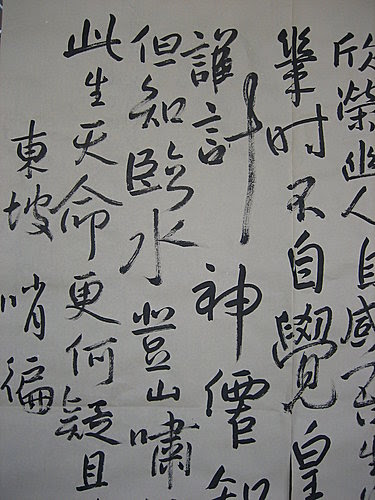 欣榮幽人自感吾生
幾时不自覺皇
誰計神僊知
但知臨水登山嘯
此生天命更何疑且
東坡 哨徧